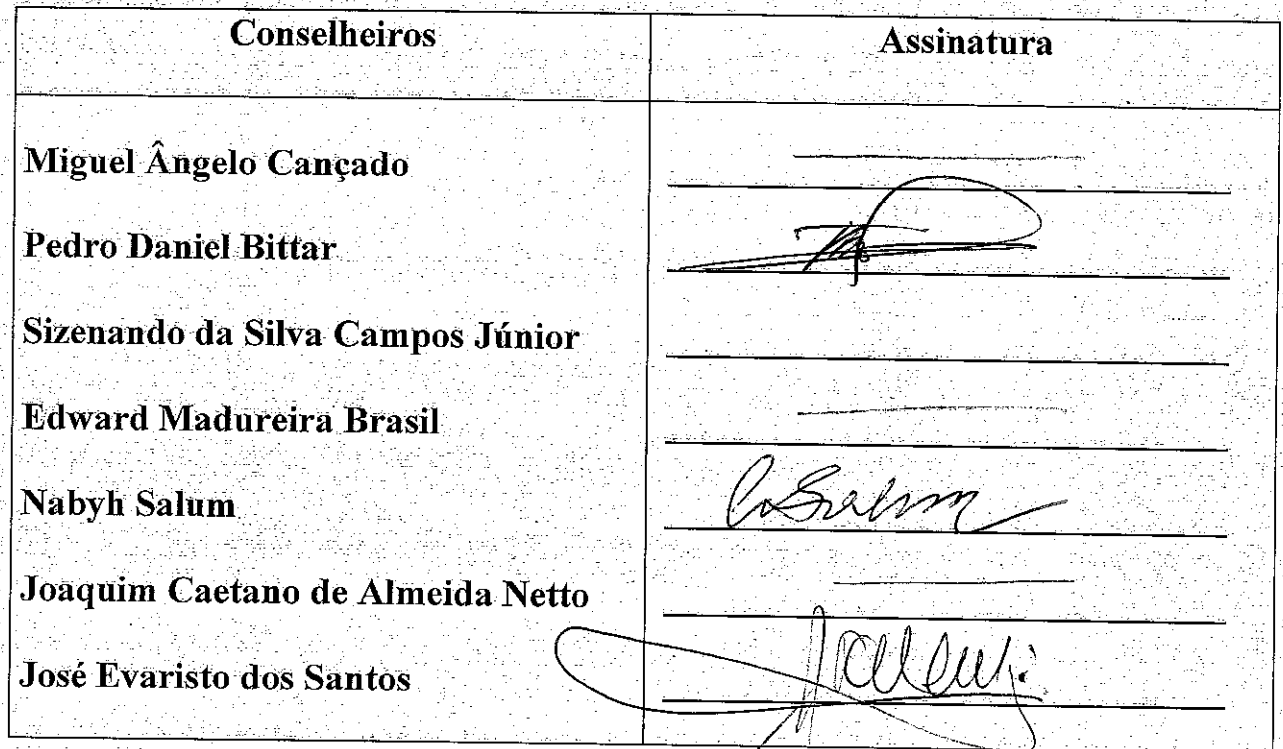 Conselheiros Assinatura
Miguel Ângelo Cançado
Pedro Daniel Bittar
Sizenando da Silva Campos Júnior
Edward Madureira Brasil
Nabyh Salum
Joaquim Caetano de Almeida Netto
José Evaristo dos Santos